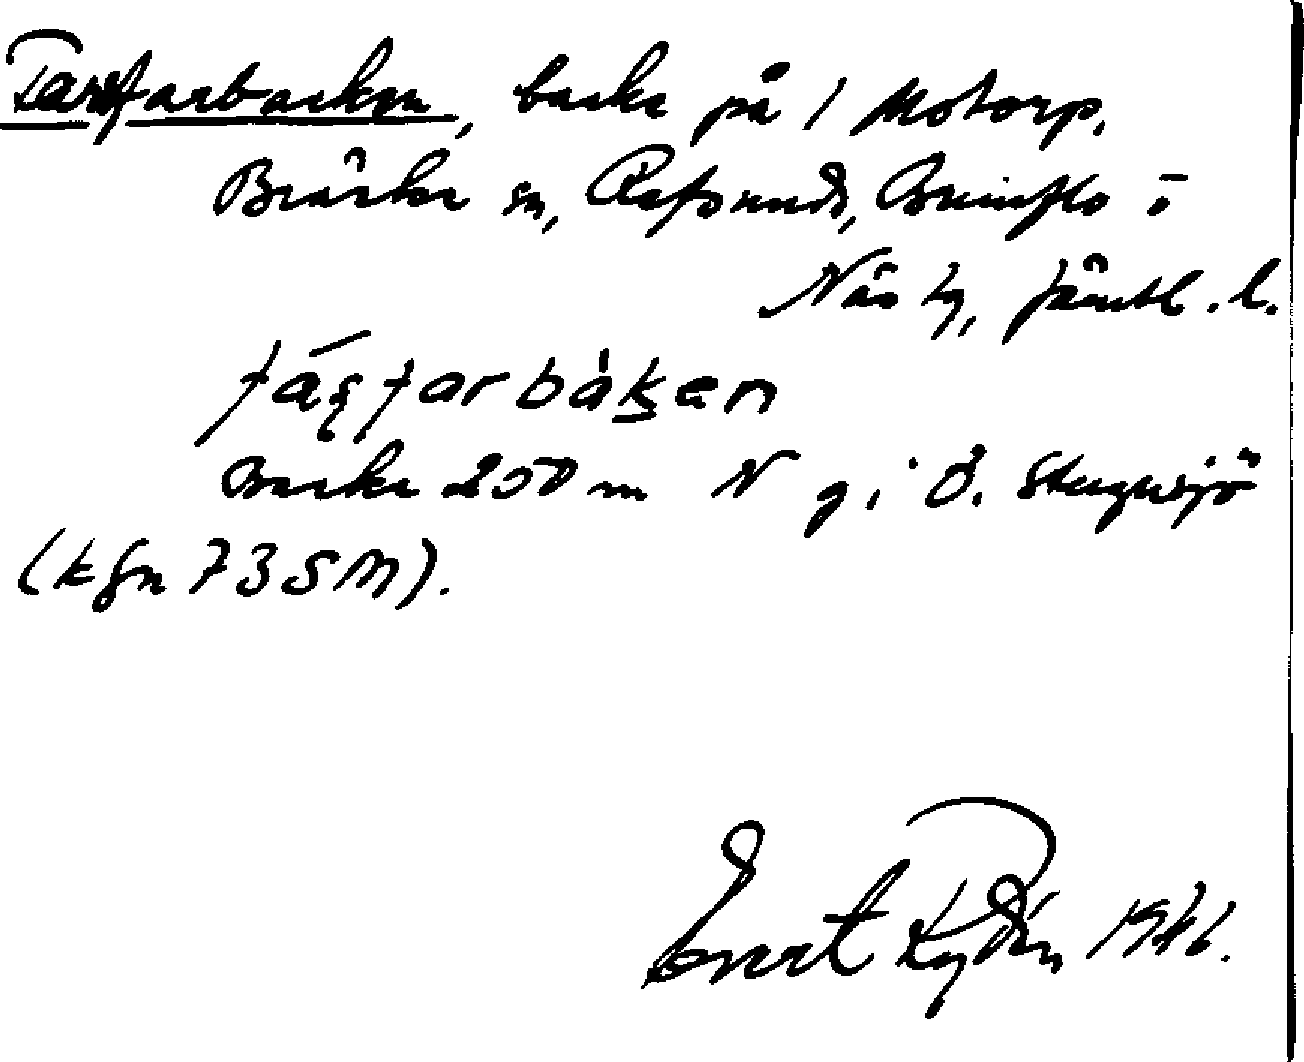 Tarsfarbacken, backe på 1 Motorp,
Bräcke sn, Refsunds, Brunflo o
Näs tg, Jämtl. l.
fàʂfarbàḵen
Backe 250 m N g. i Ö. Stugusjö
(kfn 73 SM).
Evert Rydén 1946.